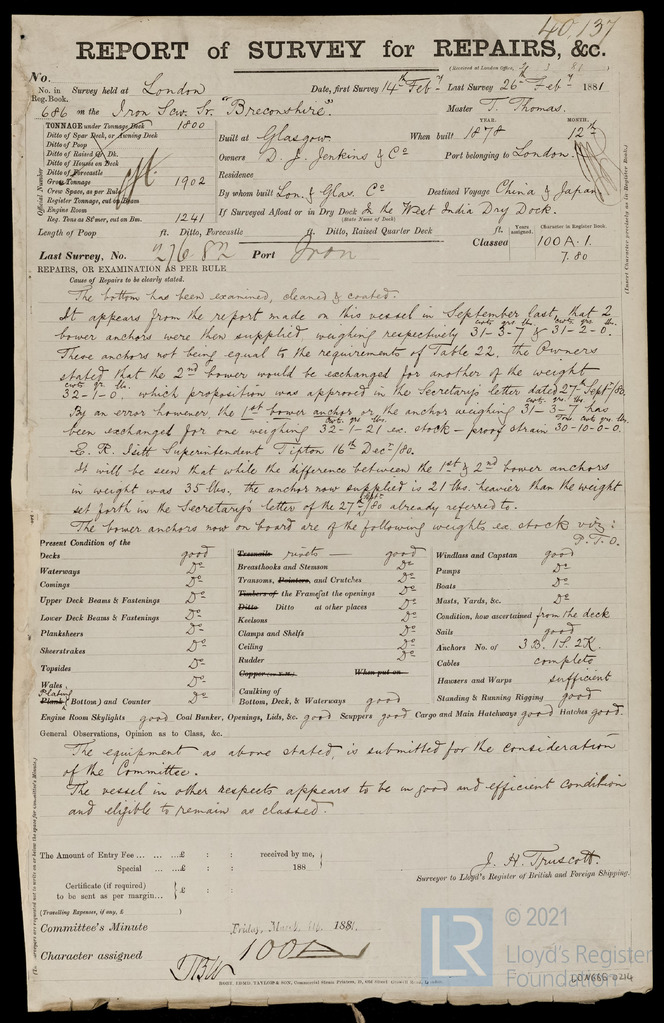 40,137
REPORT of SURVEY for REPAIRS, &c.
(Received at London Office,
No.
No. in Reg. Book. Survey held at London Date, first Survey 14th Feby Last Survey 26th Feby 1881
686 on the Iron Scw. Sr. "Breconshire". Master T. Thomas.
TONNAGE under Tonnage Deck 1800
Ditto of Spar Deck, or Awning Deck
Ditto of Poop
Ditto of Raised Qr. Dk.
Ditto of Houses on Deck
Ditto of Forecastle
Gross Tonnage 1902
Crew Space, as per Rule
Register Tonnage, cut on Beam
Engine Room
Reg. Tons as St'mer, cut on Bm. 1241
Official Number
Built at Glasgow When built YEAR. 1878 MONTH. 12th
Owners D. J. Jenkins & Co Port belonging to London.
Residence
By whom built Lon. & Glas. Co Destined Voyage China & Japan
If Surveyed Afloat or in Dry Dock & the West India Dry Dock.
(State Name of Dock)
Length of Poop ft. Ditto, Forecastle ft. Ditto, Raised Quarter Deck ft.
Last Survey, No. Port Iron
Classed Years assigned. Character in Register Book. 100 A. 1.
7.80
(Insert Character precisely as in Register Book.)
REPAIRS, OR EXAMINATION AS PER RULE
Cause of Repairs to be clearly stated.
The bottom has been examined, cleaned & coated.
It appears from the report made on this vessel in September last, that 2
cwts. qrs. lbs. cwts. qrs. lbs.
bower anchors were then supplied, weighing respectively 31-3-7 & 31-2-0.
These anchors not being equal to the requirements of Table 22, the Owners
stated that the 2nd bower would be exchanged for another of the weight
cwts. qr. lbs.
32-1-0, which proposition was approved in the Secretary's letter dated 27th Sept/80.
cwts. qrs. lbs.
By an error however, the 1st bower anchor or the anchor weighing 31-3-7 has
cwts. qrs. lbs. Tons cwts. qrs. lbs.
been exchanged for one weighing 32-1-21 ex. stock - proof strain 30-10-0-0.
C. R. Isitt Superintendent Tipton 16th Dec/80.
It will be seen that while the difference between the 1st & 2nd bower anchors
in weight was 35 lbs, the anchor now supplied is 21 lbs. heavier than the weight
set forth in the Secretary's letter of the 27th Sept/80 already referred to.
The bower anchors now on board are of the following weights ex stock viz:
P.T.O.
Present Condition of the
Decks good
Waterways Do
Comings Do
Upper Deck Beams & Fastenings Do
Lower Deck Beams & Fastenings Do
Planksheers Do
Sheerstrakes Do
Topsides Do
Wales Do
Plating
Plank (Bottom) and Counter Do
Treenails rivets — good
Breasthooks and Stemson Do
Transoms, Pointers, and Crutches Do
Timbers of the Frames at the openings Do
Ditto Ditto at other places Do
Keelsons Do
Clamps and Shelfs Do
Ceiling Do
Rudder Do
Copper (or Y.M.) When put on
Caulking of
Bottom, Deck, & Waterways good
Windlass and Capstan good
Pumps Do
Boats Do
Masts, Yards, &c. Do
Condition, how ascertained from the deck
Sails good
Anchors No. of 3B. 1S. 2K.
Cables complete
Hawsers and Warps sufficient
Standing & Running Rigging good
Engine Room Skylights good Coal Bunker, Openings, Lids, &c. good Scuppers good Cargo and Main Hatchways good Hatches good.
General Observations, Opinion as to Class, &c.
The equipment as above stated, is submitted for the consideration
of the Committee.
The vessel in other respects appears to be in good and efficient condition
and eligible to remain as classed.
The Amount of Entry Fee ... ... ... £ : : received by me,
Special ... ... £ : : 188
Certificate (if required) to be sent as per margin... £ : :
(Travelling Expenses, if any, £ )
J. H. Truscott.
Surveyor to Lloyd's Register of British and Foreign Shipping.
Committee's Minute Friday, March 1881.
Character assigned 100A
ROBT. EDMD. TAYLOR & SON,
LR
© 2021
Lloyd's Register
Foundation
LON686-0214